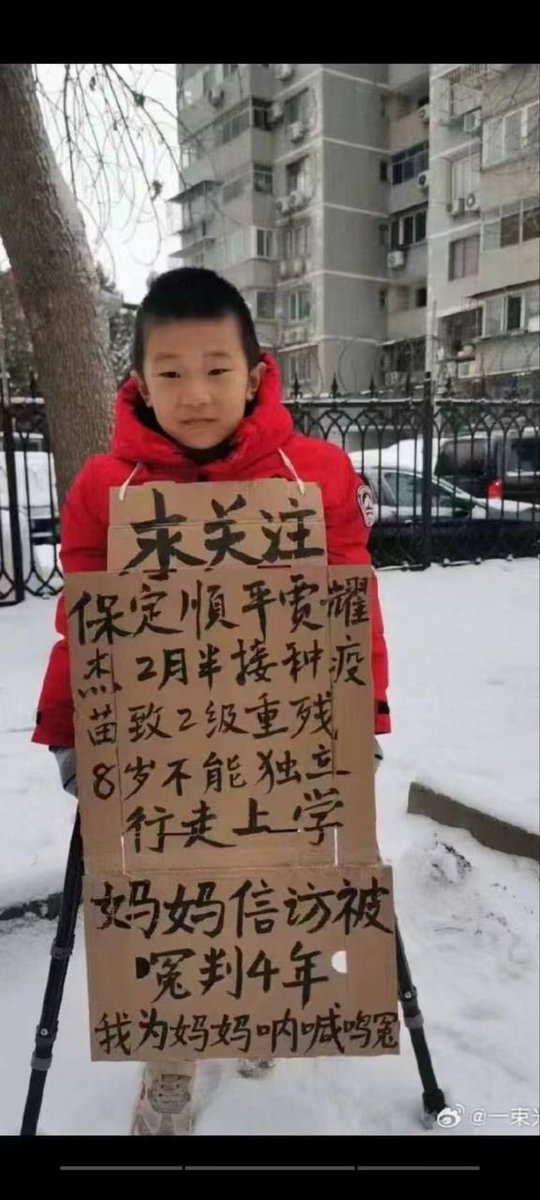 求关注
保定順平贾耀
杰2月半接种疫
苗致2级重残
8岁不能独立
行走上学
妈妈信访被
冤判4年
我为妈妈呐喊鸣冤
@一束